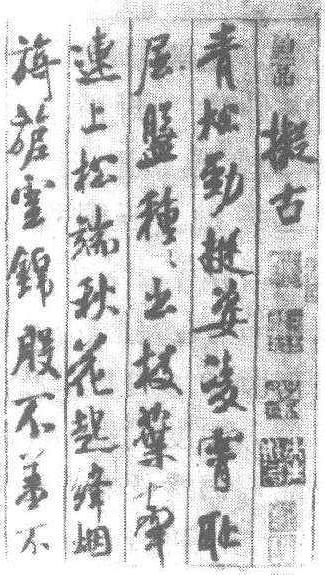 擬古
青松勁挺姿凌霄恥
屈盤種〻出枝葉牽
連上松端秋花起絳烟
旖旎雲錦殷不羞不